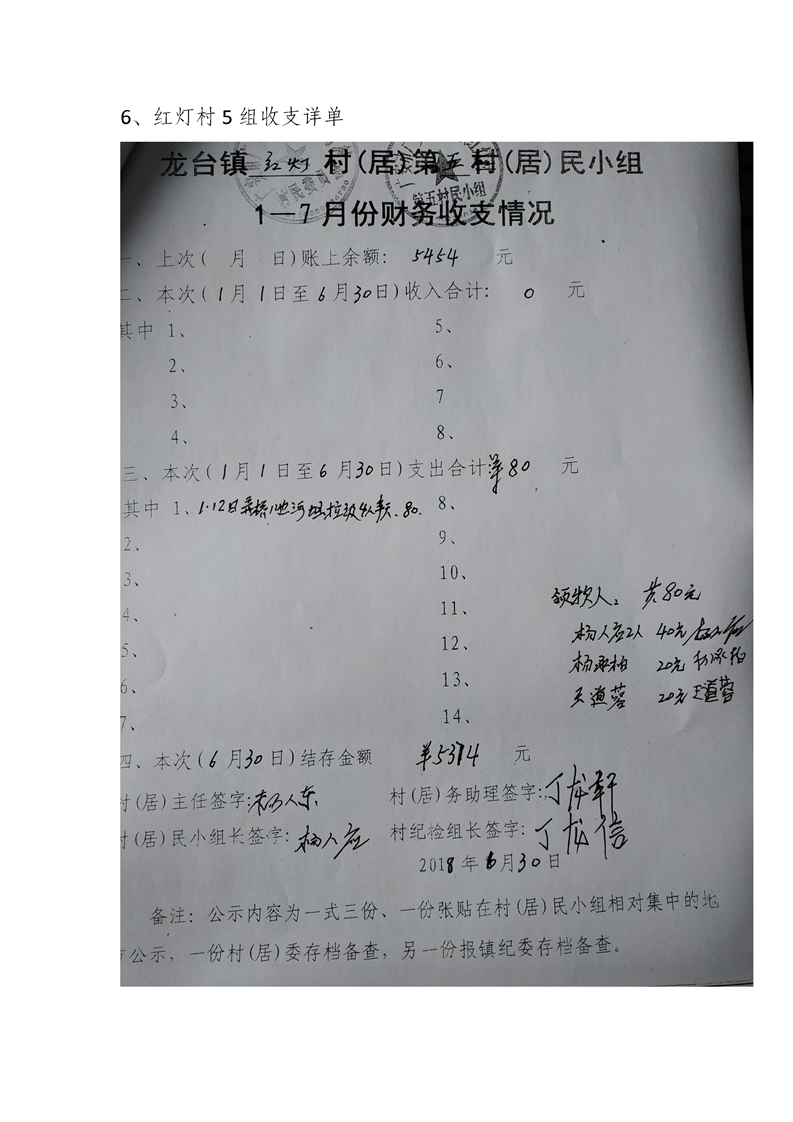 6、红灯村5组收支详单
龙台镇 红灯 村(居)第五村(居)民小组
第五村民小组
1—7月份财务收支情况
一、上次( 月 日)账上余额: 5454 元
二、本次(1月1日至6月30日)收入合计: 0 元
其中 1、 5、
2、 6、
3、 7
4、 8、
三、本次(1月1日至6月30日)支出合计 80 元
其中 1、1.12日 河 垃圾 80. 8、
2、 9、
3、 10、
4、 11、
5、 12、
6、 13、
7、 14、
领款人: 共80元
杨人应2人 40元
杨承柏 20元 杨承柏
王道蓉 20元 王道蓉
四、本次(6月30日)结存金额 5374 元
村(居)主任签字: 村(居)务助理签字:丁龙轩
村(居)民小组长签字:杨人应 村纪检组长签字:丁龙信
2018年6月30日
备注:公示内容为一式三份、一份张贴在村(居)民小组相对集中的地
方公示，一份村(居)委存档备查，另一份报镇纪委存档备查。